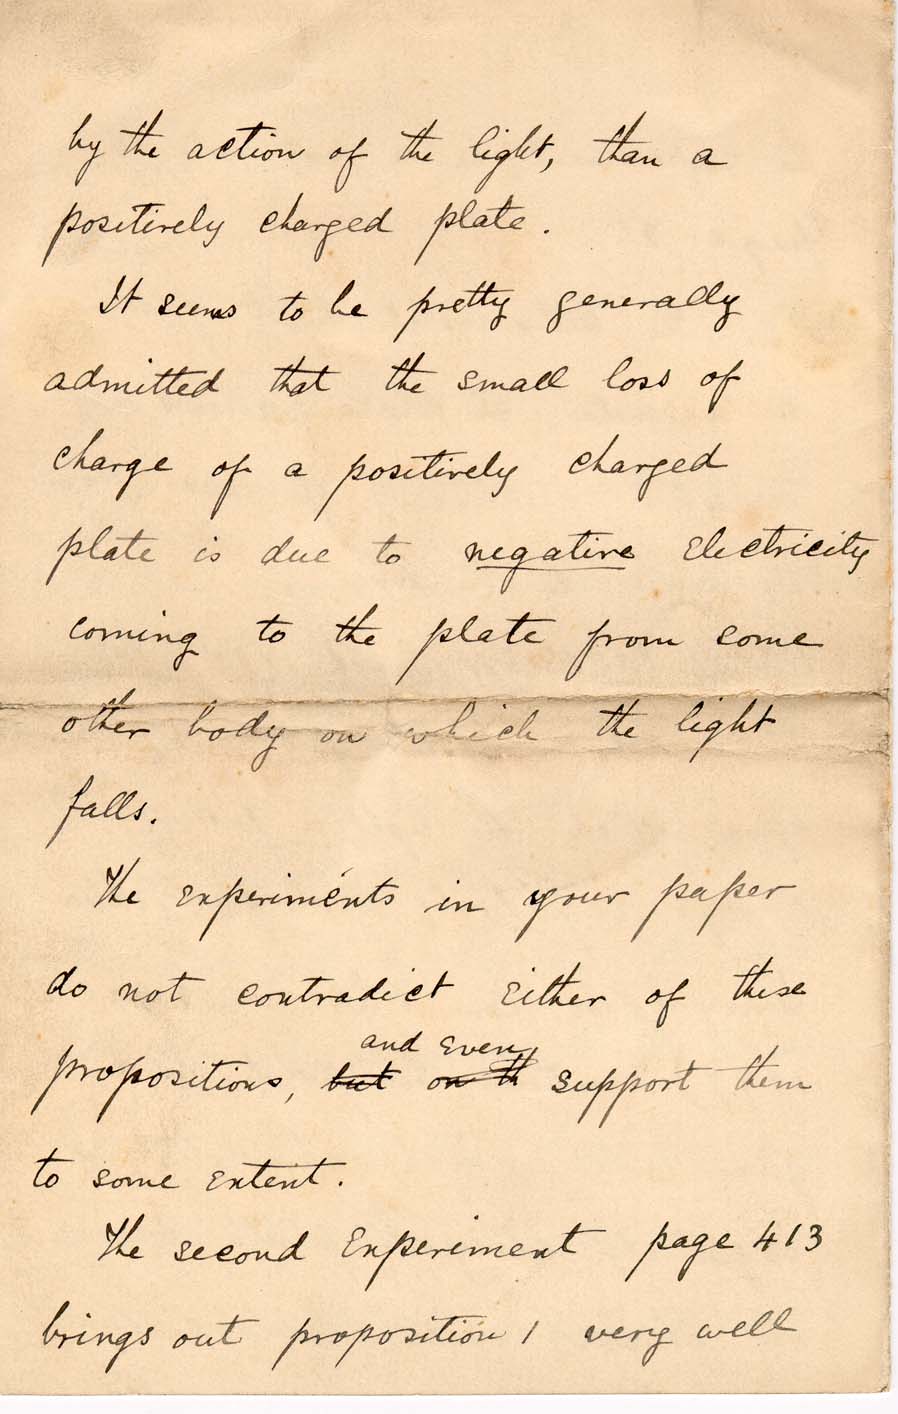 by the action of the light, than a
positively charged plate.
It seems to be pretty generally
admitted that the small loss of
charge of a positively charged
plate is due to negative Electricity
coming to the plate from some
other body on which the light
falls.
The Experiments in your paper
do not contradict Either of these
and Even
propositions, but on th support them
to some Extent.
The second Experiment page 413
brings out proposition 1 very well